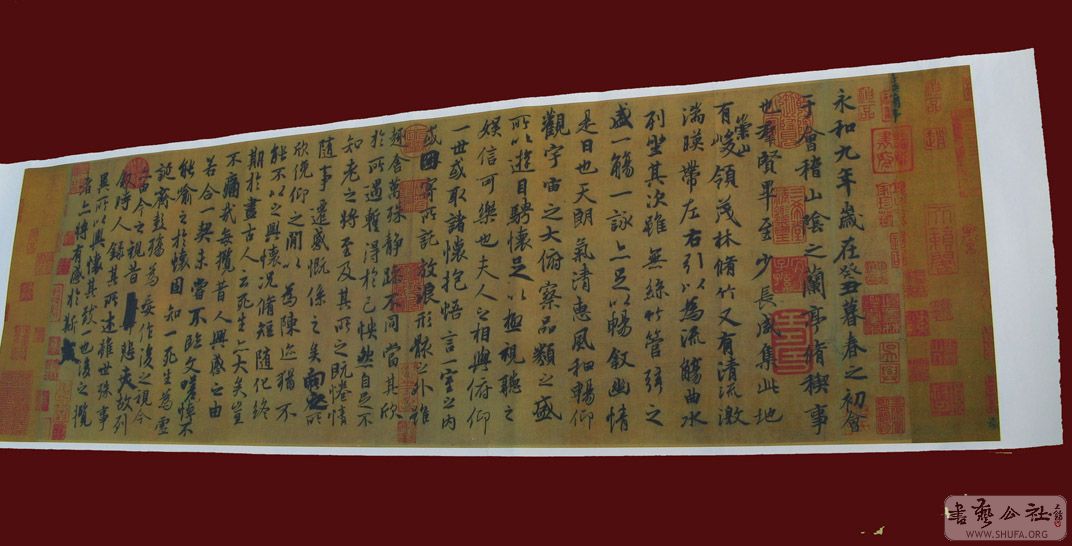 永和九年歲在癸丑暮春之初會
于會稽山陰之蘭亭脩稧事
也羣賢畢至少長咸集此地
有崇山峻領茂林脩竹又有清流激
湍暎帶左右引以為流觴曲水
列坐其次雖無絲竹管弦之
盛一觴一詠亦足以暢敘幽情
是日也天朗氣清惠風和暢仰
觀宇宙之大俯察品類之盛
所以遊目騁懷足以極視聽之
娛信可樂也夫人之相與俯仰
一世或取諸懷抱悟言一室之內
或因寄所託放浪形骸之外雖
趣舍萬殊靜躁不同當其欣
於所遇暫得於己怏然自足不
知老之將至及其所之既惓情
隨事遷感慨係之矣向之所
欣俛仰之閒以為陳迹猶不
能不以之興懷況脩短隨化終
期於盡古人云死生亦大矣豈
不痛哉每攬昔人興感之由
若合一契未嘗不臨文嗟悼不
能喻之於懷固知一死生為虛
誕齊彭殤為妄作後之視今
亦由今之視昔悲夫故列
敘時人錄其所述雖世殊事
異所以興懷其致一也後之攬
者亦將有感於斯文
書藝公社
WWW.SHUFA.ORG